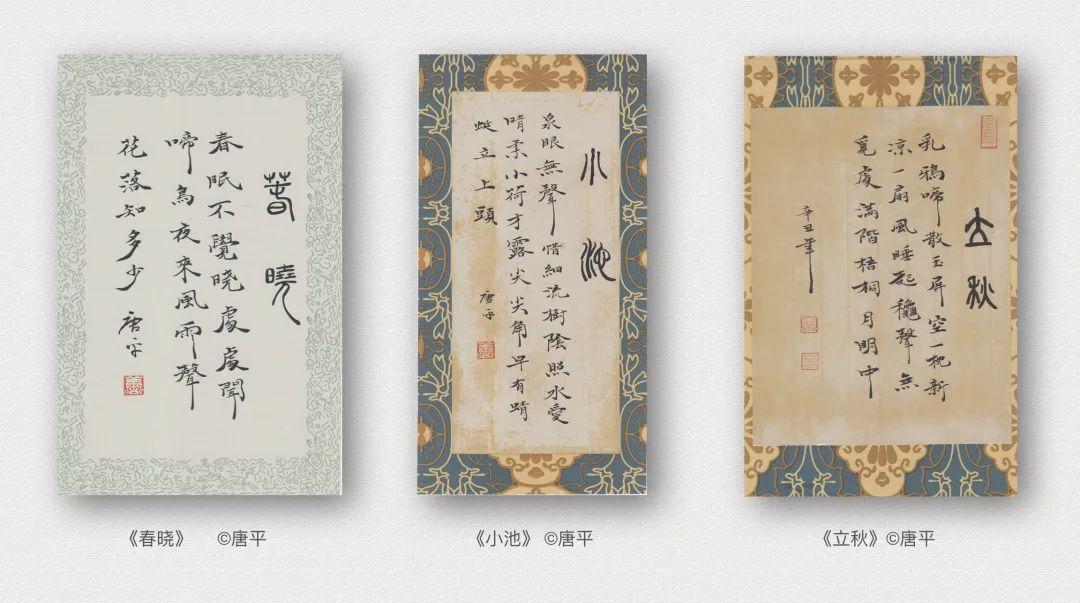 春曉
春眠不覺曉處處聞
啼鳥夜來風雨聲
花落知多少 唐平
小池
泉眼無聲惜細流樹陰照水愛
晴柔小荷才露尖尖角早有蜻
蜓立上頭
唐平
立秋
乳鴉啼散玉屏空一枕新
涼一扇風睡起穐聲無
覓處滿階梧桐月明中
辛丑年
《春晓》 ©唐平
《小池》 ©唐平
《立秋》©唐平